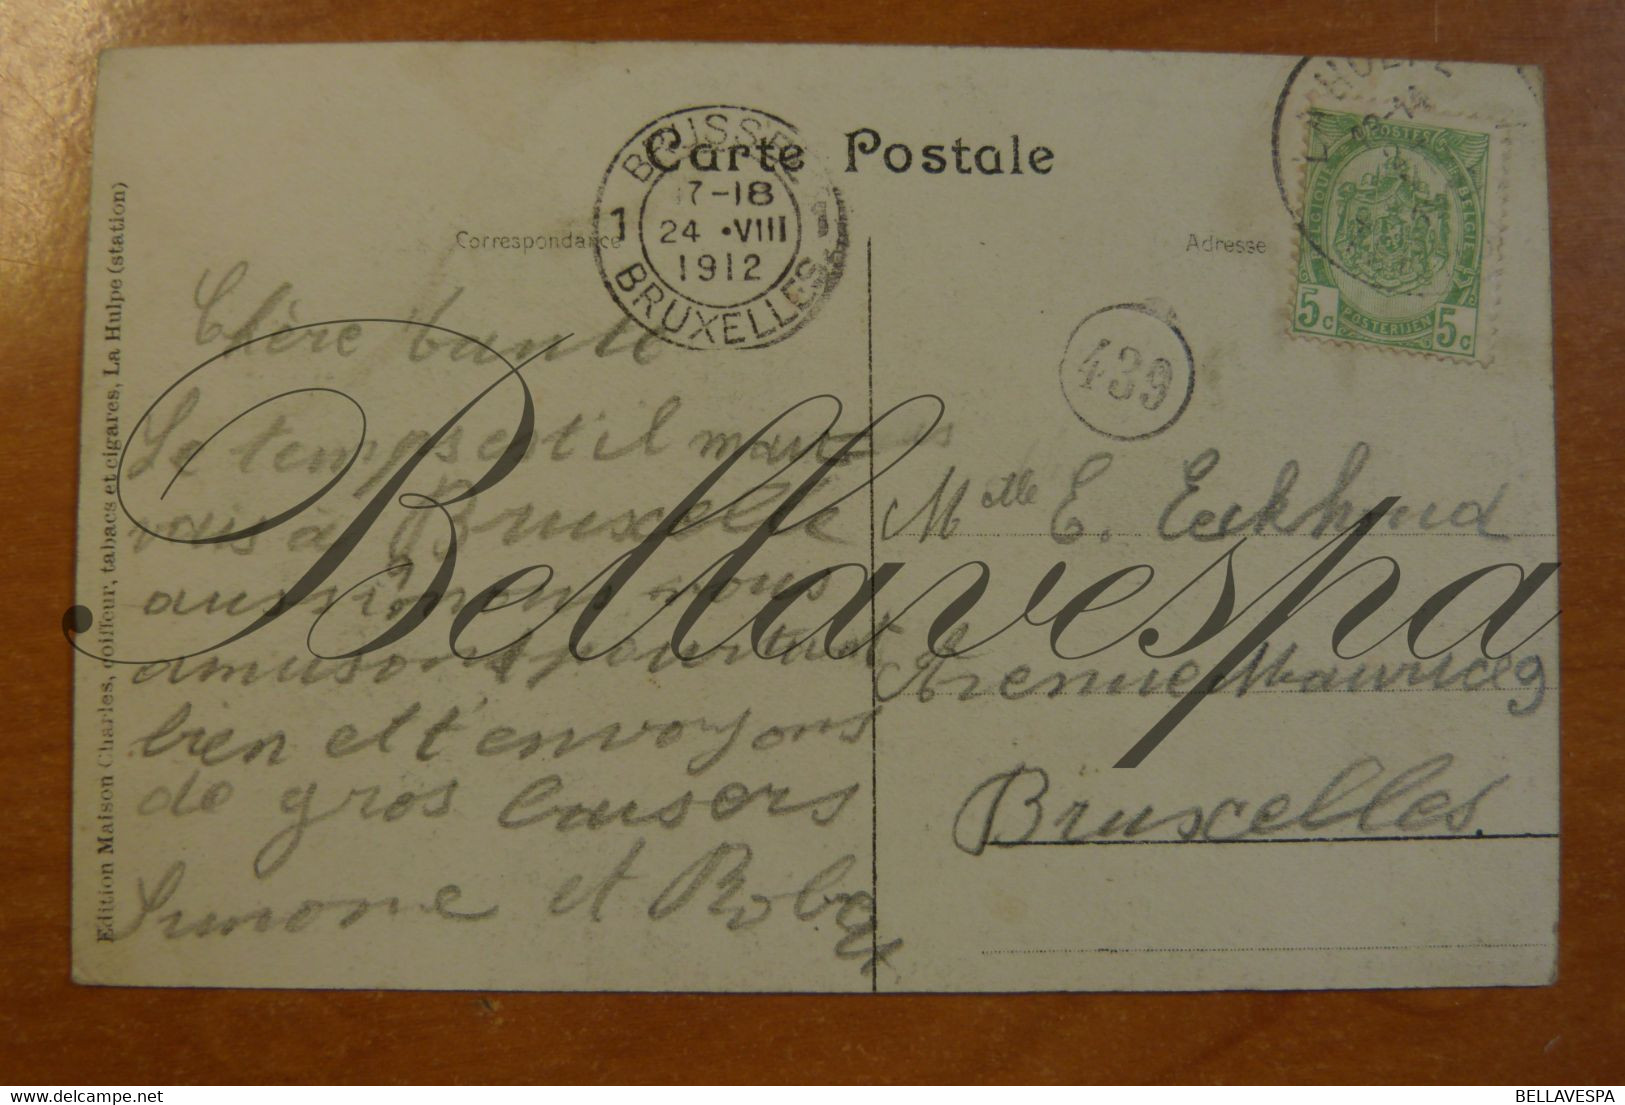 Carte Postale
Correspondance
Adresse
BRUSSEL
1 17-18 1
24 •VIII
1912
BRUXELLES
LA HULPE
POSTES
BELGIQUE
BELGIE
POSTERIJEN
5c 5c
439
Edition Maison Charles, coiffeur, tabacs et cigares, La Hulpe (station)
Chère tante
Le temps est il mau-
vais à Bruxelle
aussi nous nous
amusons pourtant
bien et t'envoyons
de gros baisers
Simone et Robert
Mlle E. Eekhoud
Avenue Maurice 9
Bruxelles.
Bellavespa
delcampe.net
BELLAVESPA